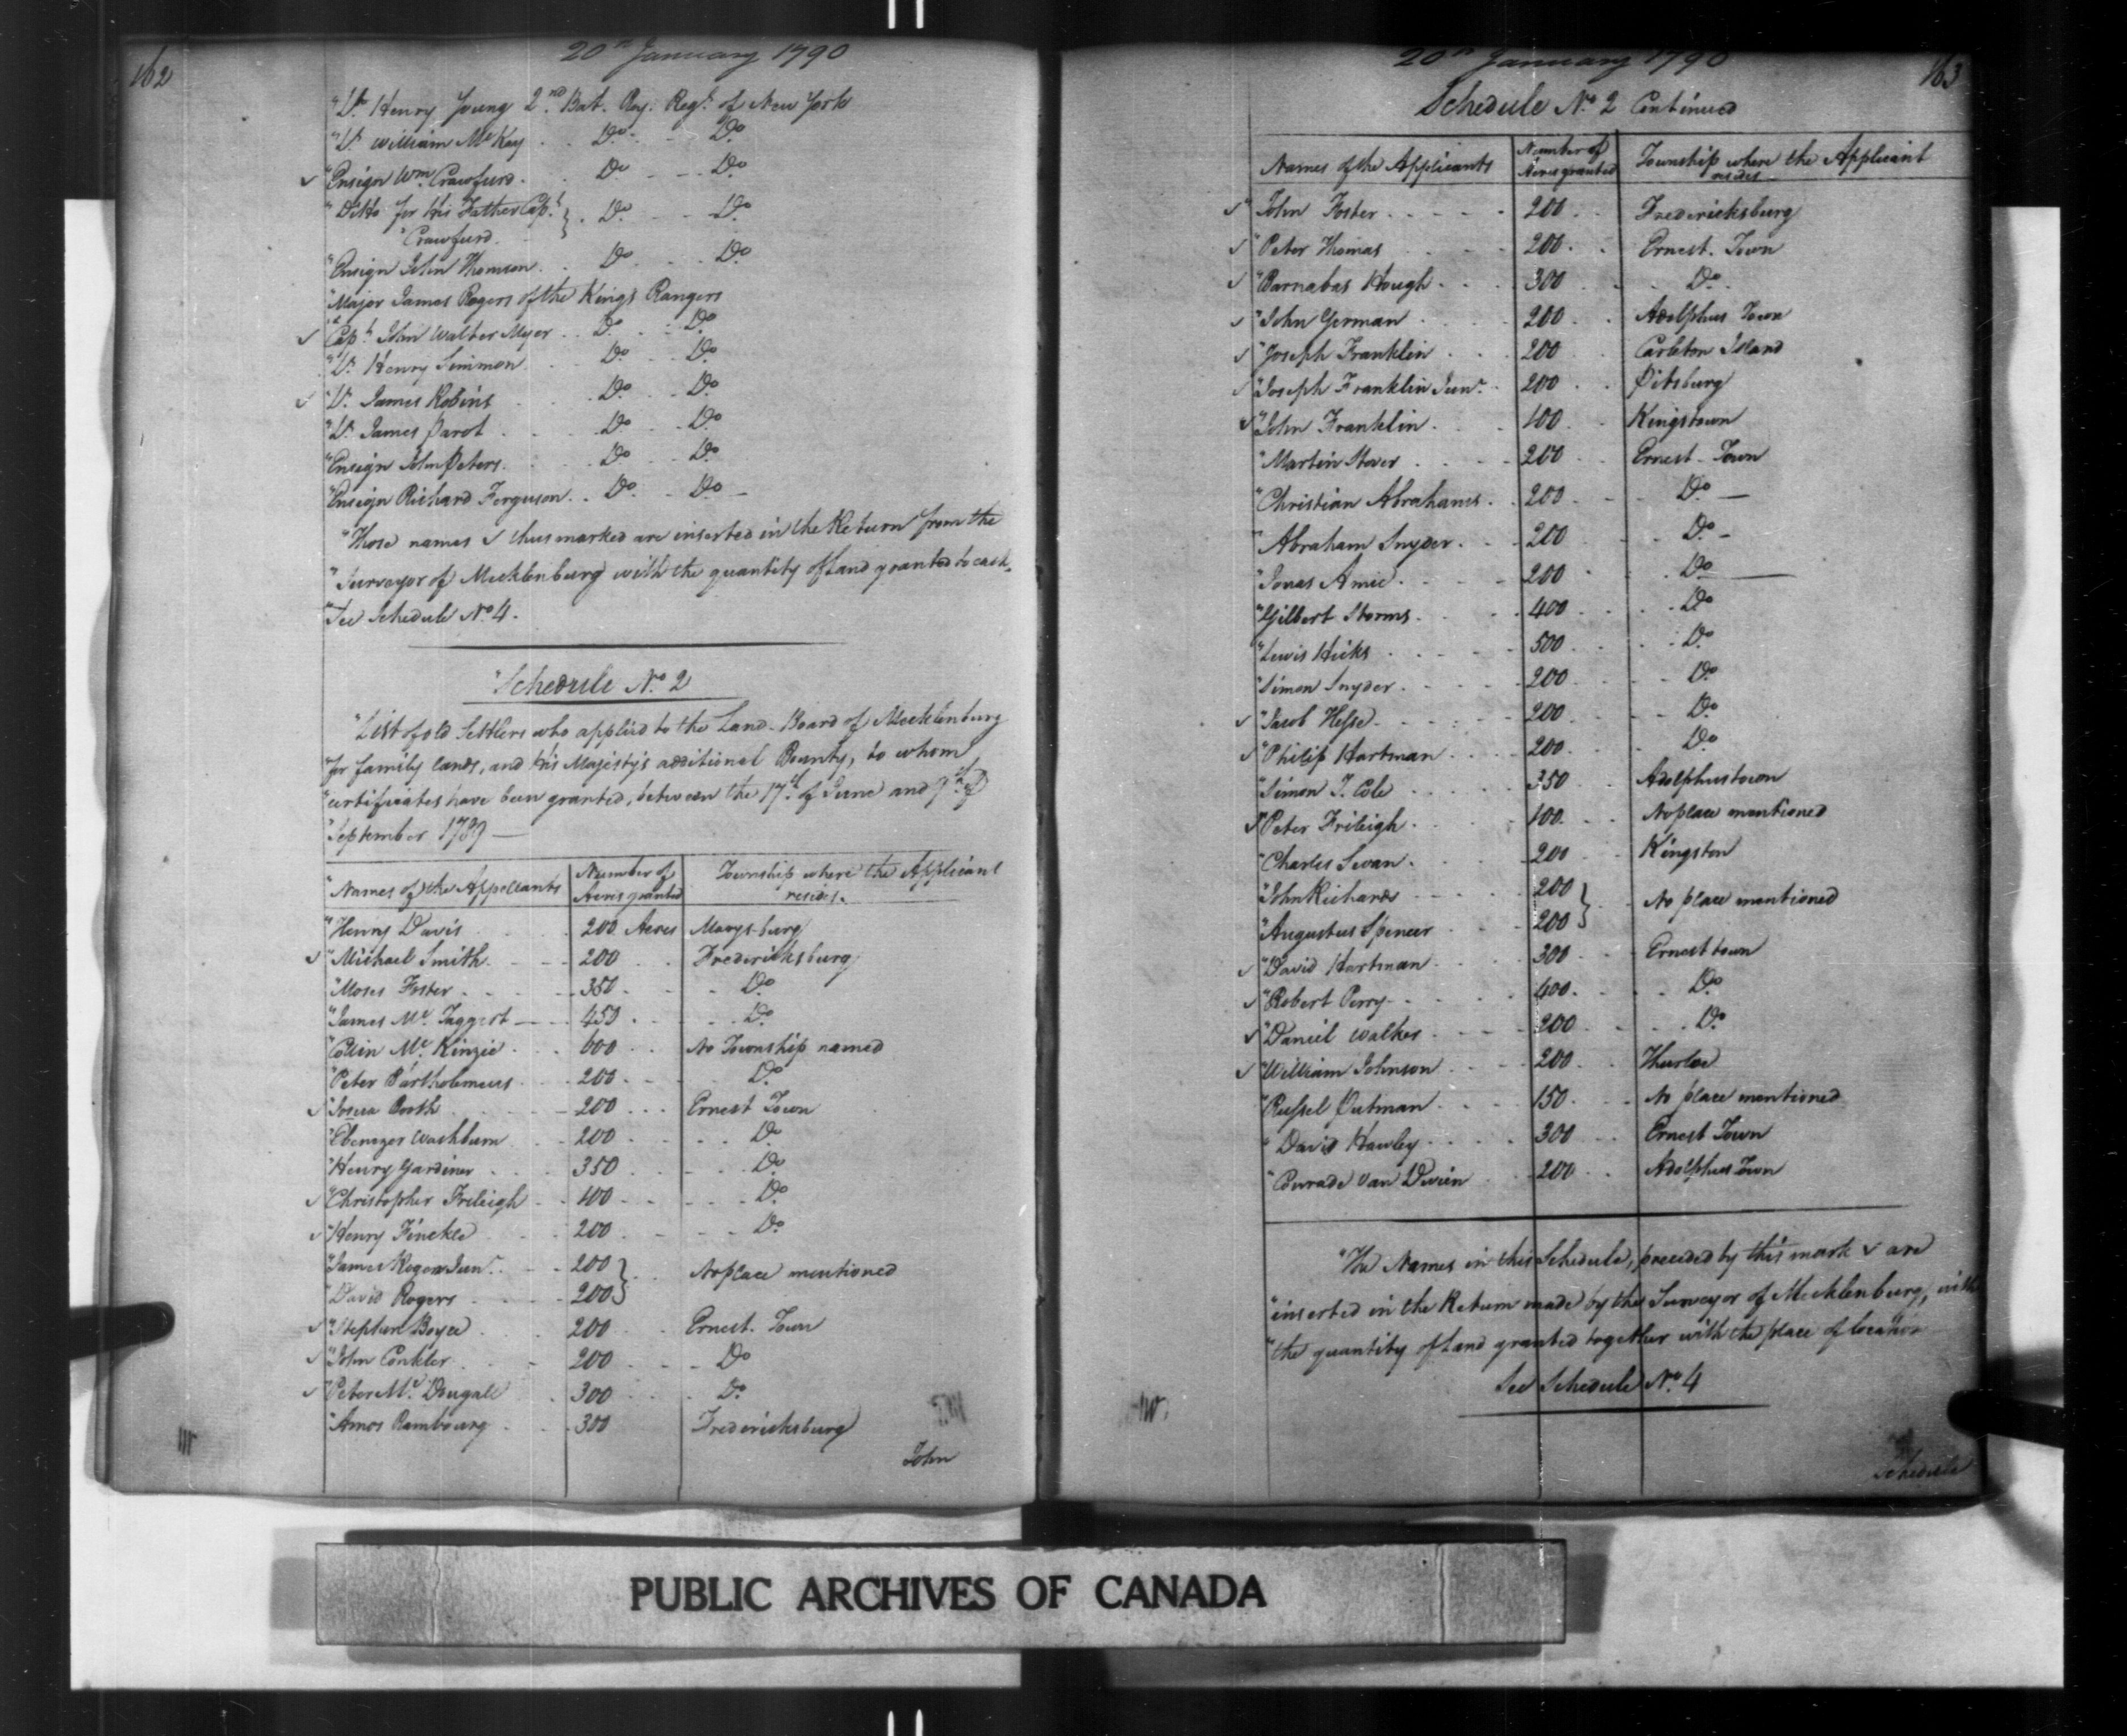 162
20th January 1790
"Lt. Henry Young 2nd Bat. Roy. Regt. of New York
"Lt. William McKay . . Do. . . Do
✓ "Ensign Wm. Crawfurd . . Do . . Do
"Ditto for his Father Capt. } . Do . . Do
"Crawfurd
"Ensign John Thomson . . Do . . Do
"Major James Rogers of the Kings Rangers
✓ "Capt. John Walter Myer . . Do . . Do
"Lt. Henry Simmon . . Do . . Do
✓ "Lt. James Robins . . Do . . Do
"Lt. James Parot . . Do . . Do
"Ensign John Peters . . Do . . Do
"Ensign Richard Ferguson . . Do . . Do
"Those names ✓ thus marked are inserted in the Return from the
"Surveyor of Mecklenburg with the quantity of Land granted to each.
"See Schedule No. 4.
"Schedule No. 2
"List of old Settlers who applied to the Land-Board of Mecklenburg
"for family lands, and His Majesty's additional Bounty, to whom
"certificates have been granted, between the 17th of June and 7th of
"September 1789 —
"Names of the Appellants Number of Acres granted Township where the Applicant resides.
"Henry Davis 200 Acres Marys-burg
✓ "Michael Smith 200 Fredericksburg
"Moses Foster 350 Do
"James Mc. Taggert 450 Do
"Collin Mc. Kinzie 600 No Township named
"Peter Bartholemeus 200 Do
✓ "Josua Booth 200 Ernest Town
"Ebenezer Washburn 200 Do
"Henry Gardiner 350 Do
✓ "Christopher Frileigh 400 Do
✓ "Henry Finckle 200 Do
"James Rogers Junr. 200 } No place mentioned
"David Rogers 200 }
✓ "Stephen Boyce 200 Ernest Town
✓ "John Conkler 200 Do
✓ "Peter Mc. Dougall 300 Do
"Amos Rambourg 300 Fredericksburg
John
163
20th January 1790
Schedule No. 2 Continued
Names of the Applicants Number of Acres granted Township where the Applicant resides
✓ "John Foster 200 Fredericksburg
✓ "Peter Thomas 200 Ernest Town
✓ "Barnabas Hough 300 Do
✓ "John German 200 Adolphus Town
✓ "Joseph Franklin 200 Carleton Island
✓ "Joseph Franklin Junr. 200 Pitsburg
✓ "John Franklin 100 Kingstown
"Martin Stover 200 Ernest Town
"Christian Abrahams 200 Do
"Abraham Snyder 200 Do
"Jonas Amie 200 Do
"Gilbert Storms 400 Do
"Lewis Hicks 500 Do
"Simon Snyder 200 Do
✓ "Jacob Hesse 200 Do
✓ "Philip Hartman 200 Do
"Simon J. Cole 350 Adolphustown
✓ "Peter Frileigh 100 No place mentioned
"Charles Swan 200 Kingston
"John Richards 200 } No place mentioned
"Augustus Spencer 200 }
✓ "David Hartman 300 Ernest town
✓ "Robert Perry 400 Do
✓ "Daniel Walker 200 Do
✓ "William Johnson 200 Thurloe
"Russel Putman 150 No place mentioned
"David Hawley 300 Ernest Town
"Conrade Van Dusen 200 Adolphus Town
"The Names in this Schedule, preceded by this mark ✓ are
"inserted in the Return made by the Surveyor of Mecklenburg, with
"the quantity of Land granted together with the place of location
See Schedule No. 4
Schedule
PUBLIC ARCHIVES OF CANADA